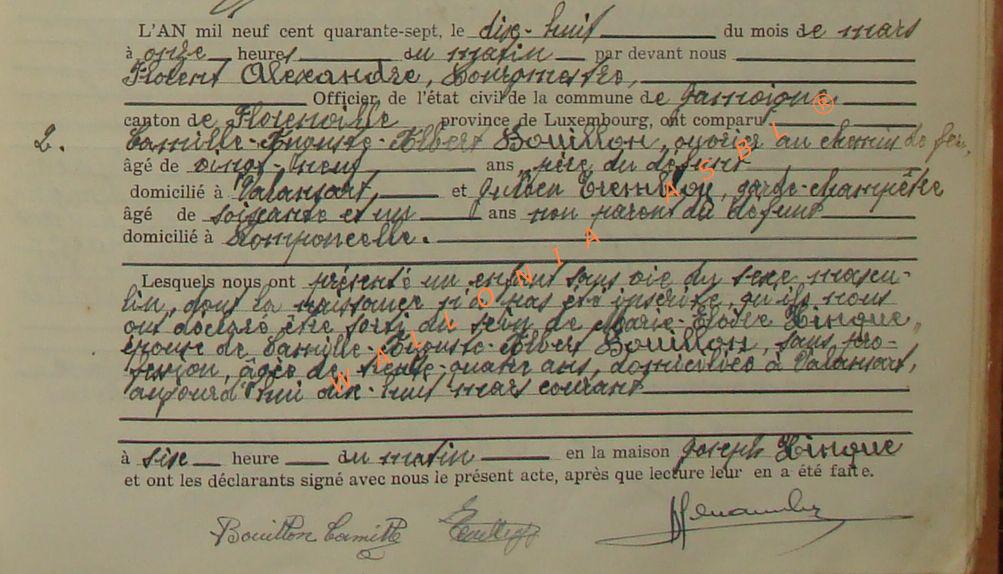 L'AN mil neuf cent quarante-sept, le dix-huit du mois de mars
à onze heures du matin par devant nous
Florent Alexandre, Bourgmestre,
Officier de l'état civil de la commune de Jamoigne
canton de Florenville province de Luxembourg, ont comparu
2. Camille-Auguste-Albert Bouillon, ouvrier au chemin de fer,
âgé de vingt-neuf ans père du défunt
domicilié à Valansart, et Julien garde-champêtre
âgé de soixante et un ans non parent du défunt
domicilié à Romponcelle.
Lesquels nous ont présenté un enfant sans vie du sexe mascu-
lin, dont la naissance n'a pas été inscrite, qu'ils nous
ont déclaré être sorti du sein de Marie-Elodie Hinque,
épouse de Camille-Auguste-Albert Bouillon, sans pro-
fession, âgée de trente-quatre ans, domiciliée à Valansart,
aujourd'hui dix-huit mars courant
à six heure du matin en la maison Joseph Hinque
et ont les déclarants signé avec nous le présent acte, après que lecture leur en a été faite.
Bouillon Camille
WALLONIA ASBL ®